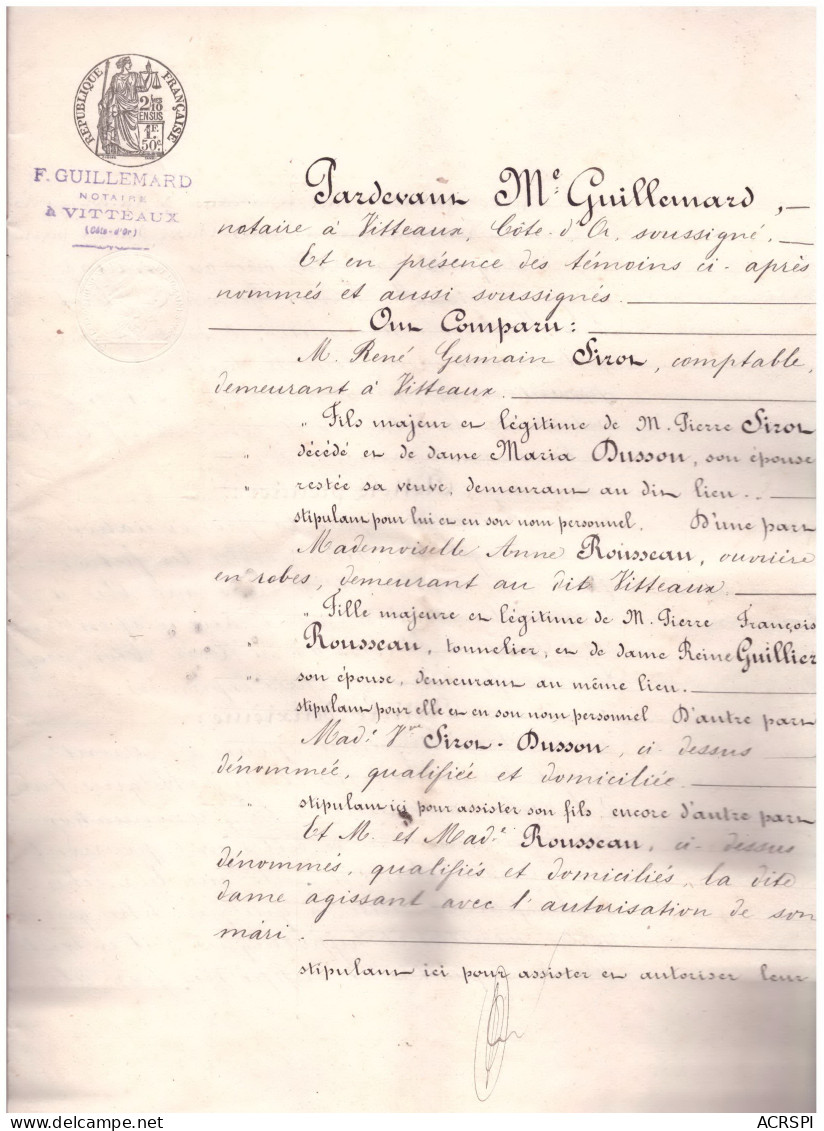 RÉPUBLIQUE FRANÇAISE
2/10
EN SUS
1F.
50c.
F. GUILLEMARD
NOTAIRE
à VITTEAUX
(Côte-d'Or)
Pardevant Me Guillemard,
notaire à Vitteaux, Côte-d'Or, soussigné,
Et en présence des témoins ci-après
nommés et aussi soussignés.
Ont Comparu:
M. René Germain Sirot, comptable,
demeurant à Vitteaux.
" Fils majeur et légitime de M. Pierre Sirot
" décédé et de dame Maria Dusson, son épouse
" restée sa veuve, demeurant au dit lieu.
stipulant pour lui et en son nom personnel. D'une part
Mademoiselle Anne Rousseau, ouvrière
en robes, demeurant au dit Vitteaux.
" Fille majeure et légitime de M. Pierre François
" Rousseau, tonnelier, et de dame Reine Guillier
" son épouse, demeurant au même lieu.
stipulant pour elle et en son nom personnel D'autre part
Made Vve Sirot-Dusson, ci-dessus
dénommée, qualifiée et domiciliée.
" stipulant ici pour assister son fils encore d'autre part
Et M. et Made Rousseau, ci-dessus
dénommés, qualifiés et domiciliés, la dite
dame agissant avec l'autorisation de son
mari.
stipulant ici pour assister et autoriser leur
ACRSPI